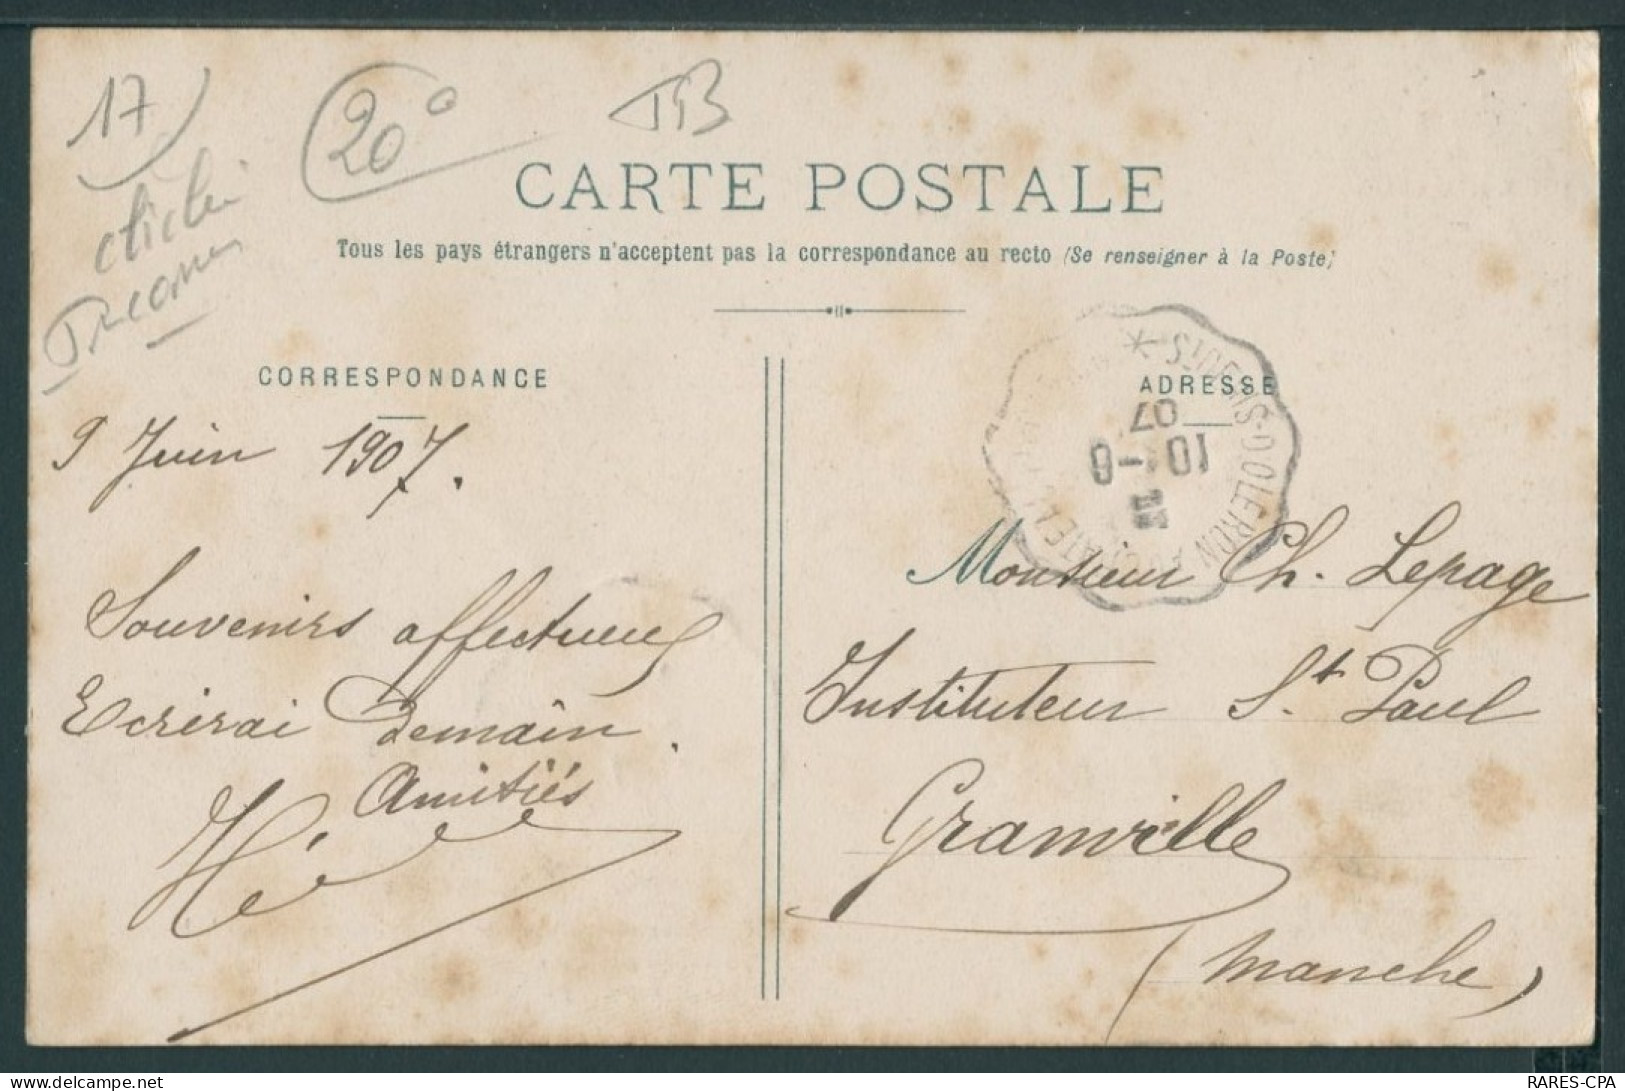 17
20°
TB
CARTE POSTALE
Tous les pays étrangers n'acceptent pas la correspondance au recto (Se renseigner à la Poste)
CORRESPONDANCE
ADRESSE
ST DENIS-D'OLERON
10 - 6
07
9 Juin 1907.
Souvenirs affectueux
Ecrirai Demain.
Amitiés
Monsieur Ch. Lepage
Instituteur St. Paul
Granville
(Manche)
RARES-CPA